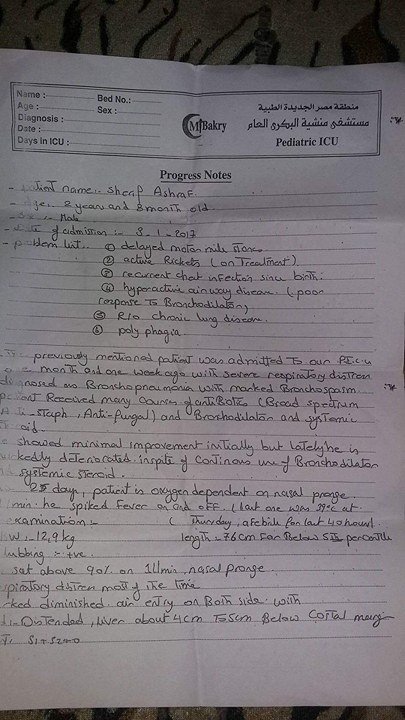 Name :
Bed No.:
Age :
Sex :
Diagnosis :
Date :
Days in ICU :
M.Bakry
منطقة مصر الجديدة الطبية
مستشفى منشية البكرى العام
Pediatric ICU
Progress Notes
name:- Sherif Ashraf.
- age:. 2 years and 8 month old
Male
date of admission :- 3-1-2017
- problem list.. ① delayed motor mile stone
② active Rickets (on Treatment)
③ recurrent chest infection since birth.
④ hyperactive airway disease. (poor
response To Bronchodilator)
⑤ R/O chronic lung disease
⑥ poly phagia
previously mentioned patient was admitted To our P.I.C.U
month and one week ago with severe respiratory distress
diagnosed as Bronchopneumonia with marked Bronchospasm
patient Received many Courses of antibiotics (Broad spectrum
Anti-staph, Anti-fungal) and Bronchodilator and systemic
showed minimal improvement initially but lately he is
markedly deteriorated inspite of Continous use of Bronchodilator
systemic steroid.
25 days, patient is oxygen dependent on nasal prong
he spiked Fever on and off. (last one was 39°c at
Examination :- Thursday, afebrile for last 48 hours)
12,9 kg length = 76 cm Far Below 5th percentile
clubbing :- +ve
sat above 90% on 1L/min nasal prong.
respiratory distress most of the time
marked diminished air entry on Both side with
Distended, Liver about 4cm To 5cm Below Costal margin
S1 + S2 + 0